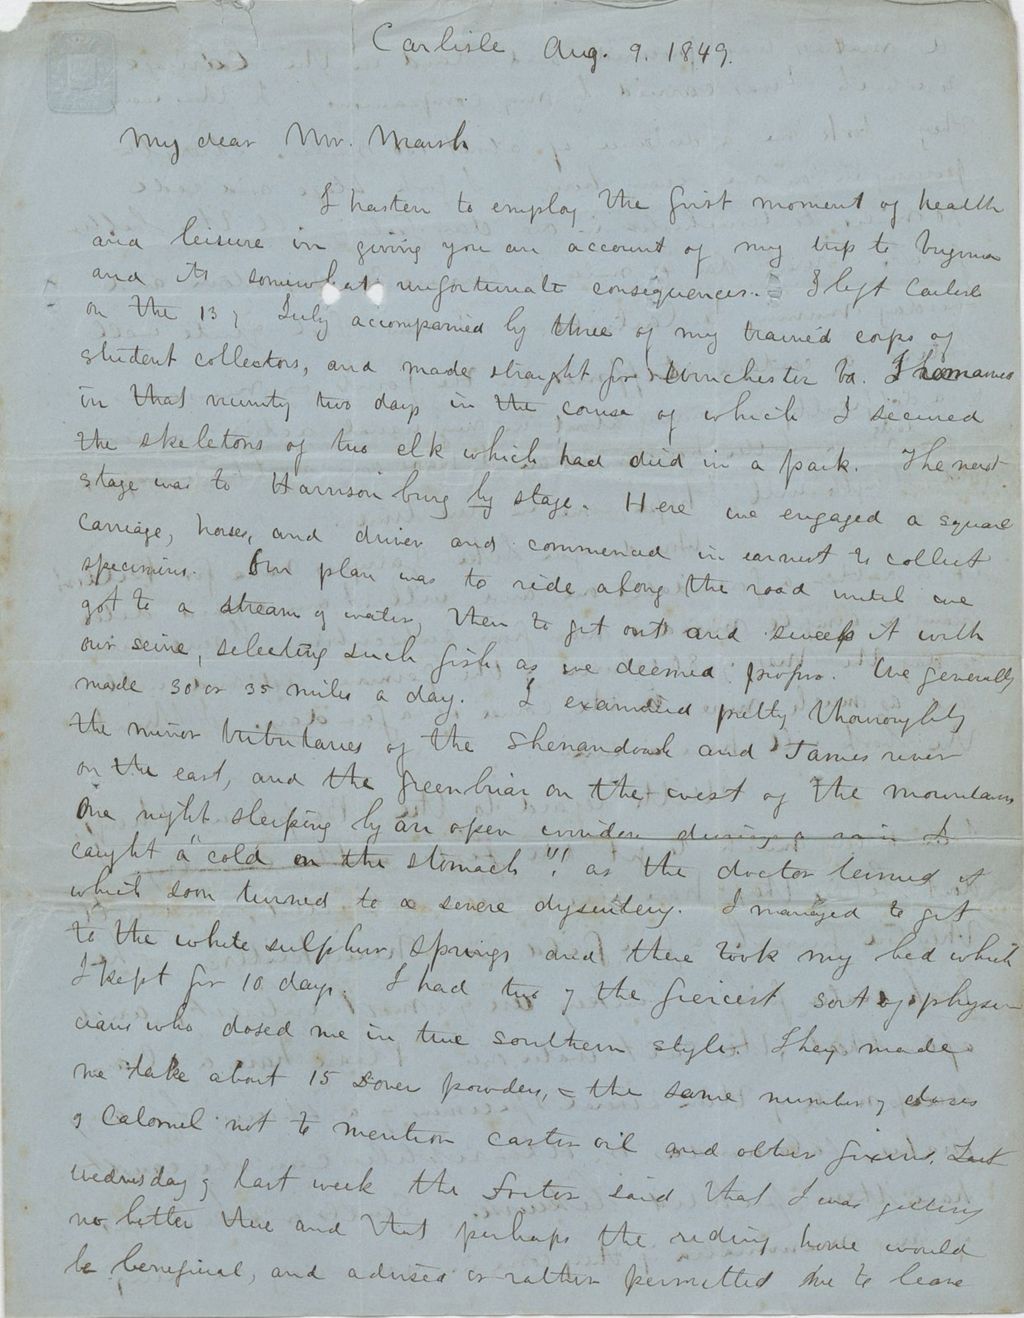 Carlisle Aug. 9. 1849.
My dear Mr. Marsh
I hasten to employ the first moment of health
and leisure in giving you an account of my trip to Virginia
and its somewhat unfortunate consequences. I left Carlisle
on the 13 of July accompanied by three of my trained corps of
student collectors, and made straight for Winchester Va. I remained
in that vicinity two days in the course of which I secured
the skeletons of two elk which had died in a park. The next
stage was to Harrisonburg by stage. Here we engaged a square
carriage, horses, and driver and commenced in earnest to collect
specimens. Our plan was to ride along the road until we
got to a stream of water, then to get out and sweep it with
our seine, selecting such fish as we deemed proper. We generally
made 30 or 35 miles a day. I examined pretty thoroughly
the minor tributaries of the Shenandoah and James river
on the east, and the Greenbriar on the west of the mountains
One night sleeping by an open window during a rain I
caught a "cold on the stomach"!! as the doctor termed it
which soon turned to a severe dysentery. I managed to get
to the white sulphur springs and there took my bed which
I kept for 10 days. I had two of the fiercest sort of physi
cians who dosed me in true southern style. They made
me take about 15 Dover powders, = the same number of doses
of Calomel not to mention castor oil and other fixins. Last
wednesday of last week the Doctor said that I was getting
no better there and that perhaps the riding home would
be beneficial, and advised or rather permitted me to leave